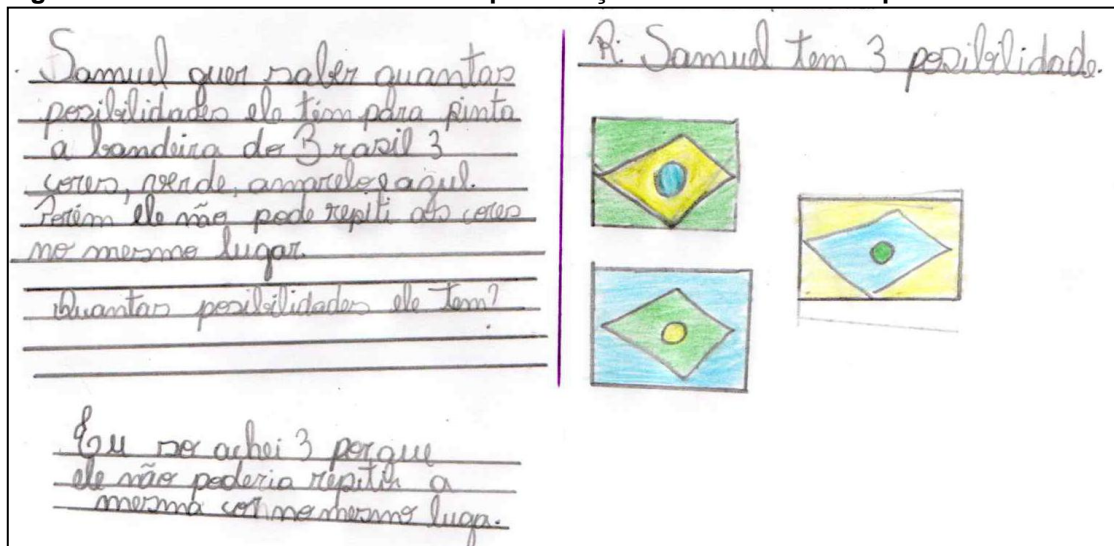 Samuel quer saber quantas
posibilidades ele tem para pinta
a bandeira do Brasil 3
cores, verde, amarelo e azul.
Porém ele não pode repiti as cores
no mesmo lugar.
Quantas posibilidades ele tem?
Eu so achei 3 porque
ele não poderia repitir a
mesma cor no mesmo luga.
R: Samuel tem 3 posibilidade.